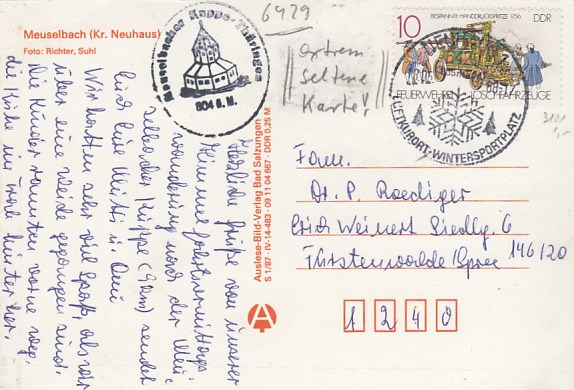 Meuselbach (Kr. Neuhaus)
Foto: Richter, Suhl
Meuselbacher Kuppe-Thüringen
804 ü. M.
6429
extrem
seltene
Karte!
10
BESPANNTE HANDDRUCKSPRITZE 1756
DDR
FEUERWEHR
LÖSCHFAHRZEUGE
LUFTKURORT-WINTERSPORTPLATZ
Herzliche Grüße von unserer
Himmelfahrtsvormittags-
wanderung nach der Meu-
selbacher Kuppe
sendet
Wir hatten sehr viel Spaß, als wir
über eine Weide gegangen sind.
Die Kinder rannten vorne weg,
die Kühe im Trab hinterher.
Auslese-Bild-Verlag Bad Salzungen
S 1/87 · IV-14-483 · 09 11 04 667 · DDR 0,25 M
A
Fam.
Dr. P. Roediger
Erich Weinert Siedlg. 6
Fürstenwalde/Spree
146/20
1240